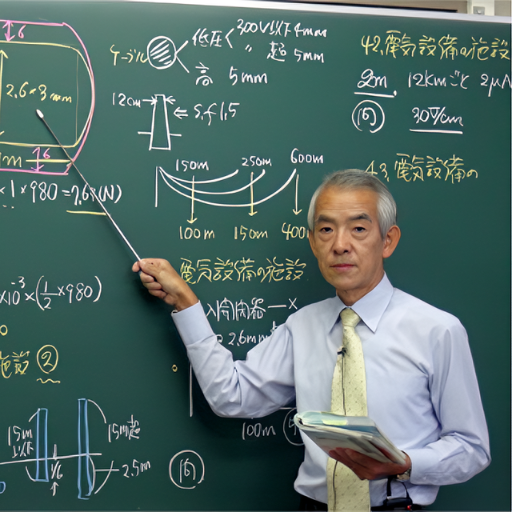 6
2.6×3mm
6
×1×980=7.6×(N)
×10⁻³×(½×980)
施設②
15m
以下
1/6
15m超
2.5m
⑯
ケーブル
低圧 300V以下 4mm
〃 超 5mm
高 5mm
12cm
S.f 1.5
150m 250m 600m
100m 150m 400
電気設備の施設
2.6mm
100m
42.電気設備の施設
2m 12kmごと 2μA
⑯ 30V/cm
43.電気設備の